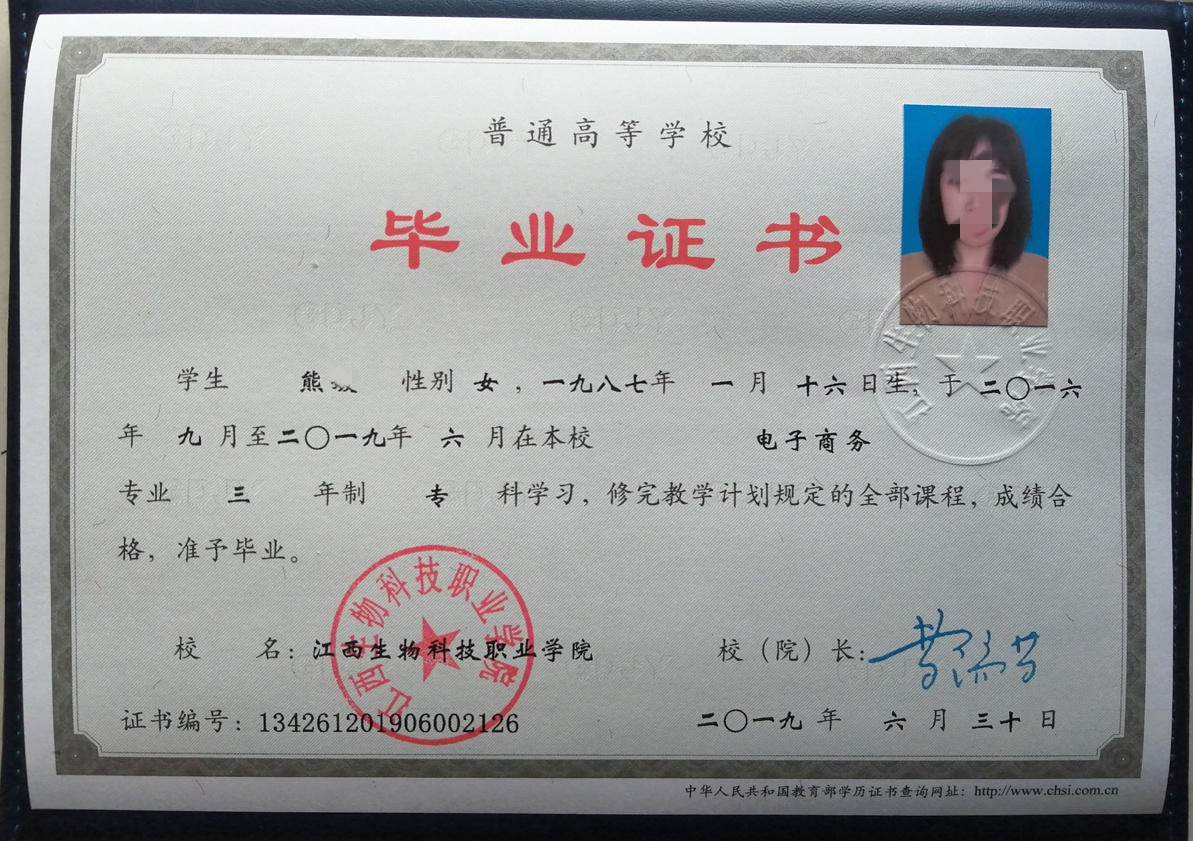 普通高等学校
毕业证书
学生 熊 性别 女，一九八七年 一月 十六日生，于 二〇一六
年 九月至二〇一九年 六月在本校 电子商务
专业 三 年制 专 科学习，修完教学计划规定的全部课程，成绩合
格，准予毕业。
校 名：江西生物科技职业学院
校（院）长：
证书编号：134261201906002126
二〇一九年 六月三十日
江西生物科技职业学院
中华人民共和国教育部学历证书查询网址：http://www.chsi.com.cn